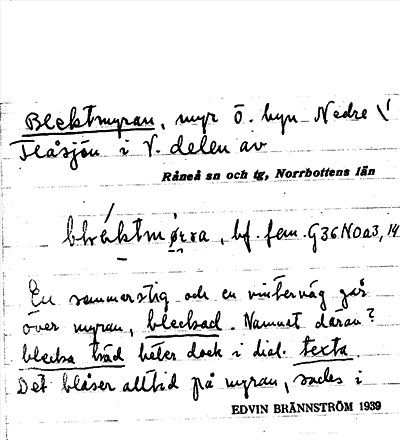 Blektmyran, myr ö. byn Nedre
Flåsjön i V. delen av
Råneå sn och tg, Norrbottens län
bf. fem. G36NOa3,14
En sommarstig och en vinterväg går
över myran, bleckad. Namnet därav?
blecka träd heter dock i dial. texta.
Det blåser alltid på myran, sades i
EDVIN BRÄNNSTRÖM 1939